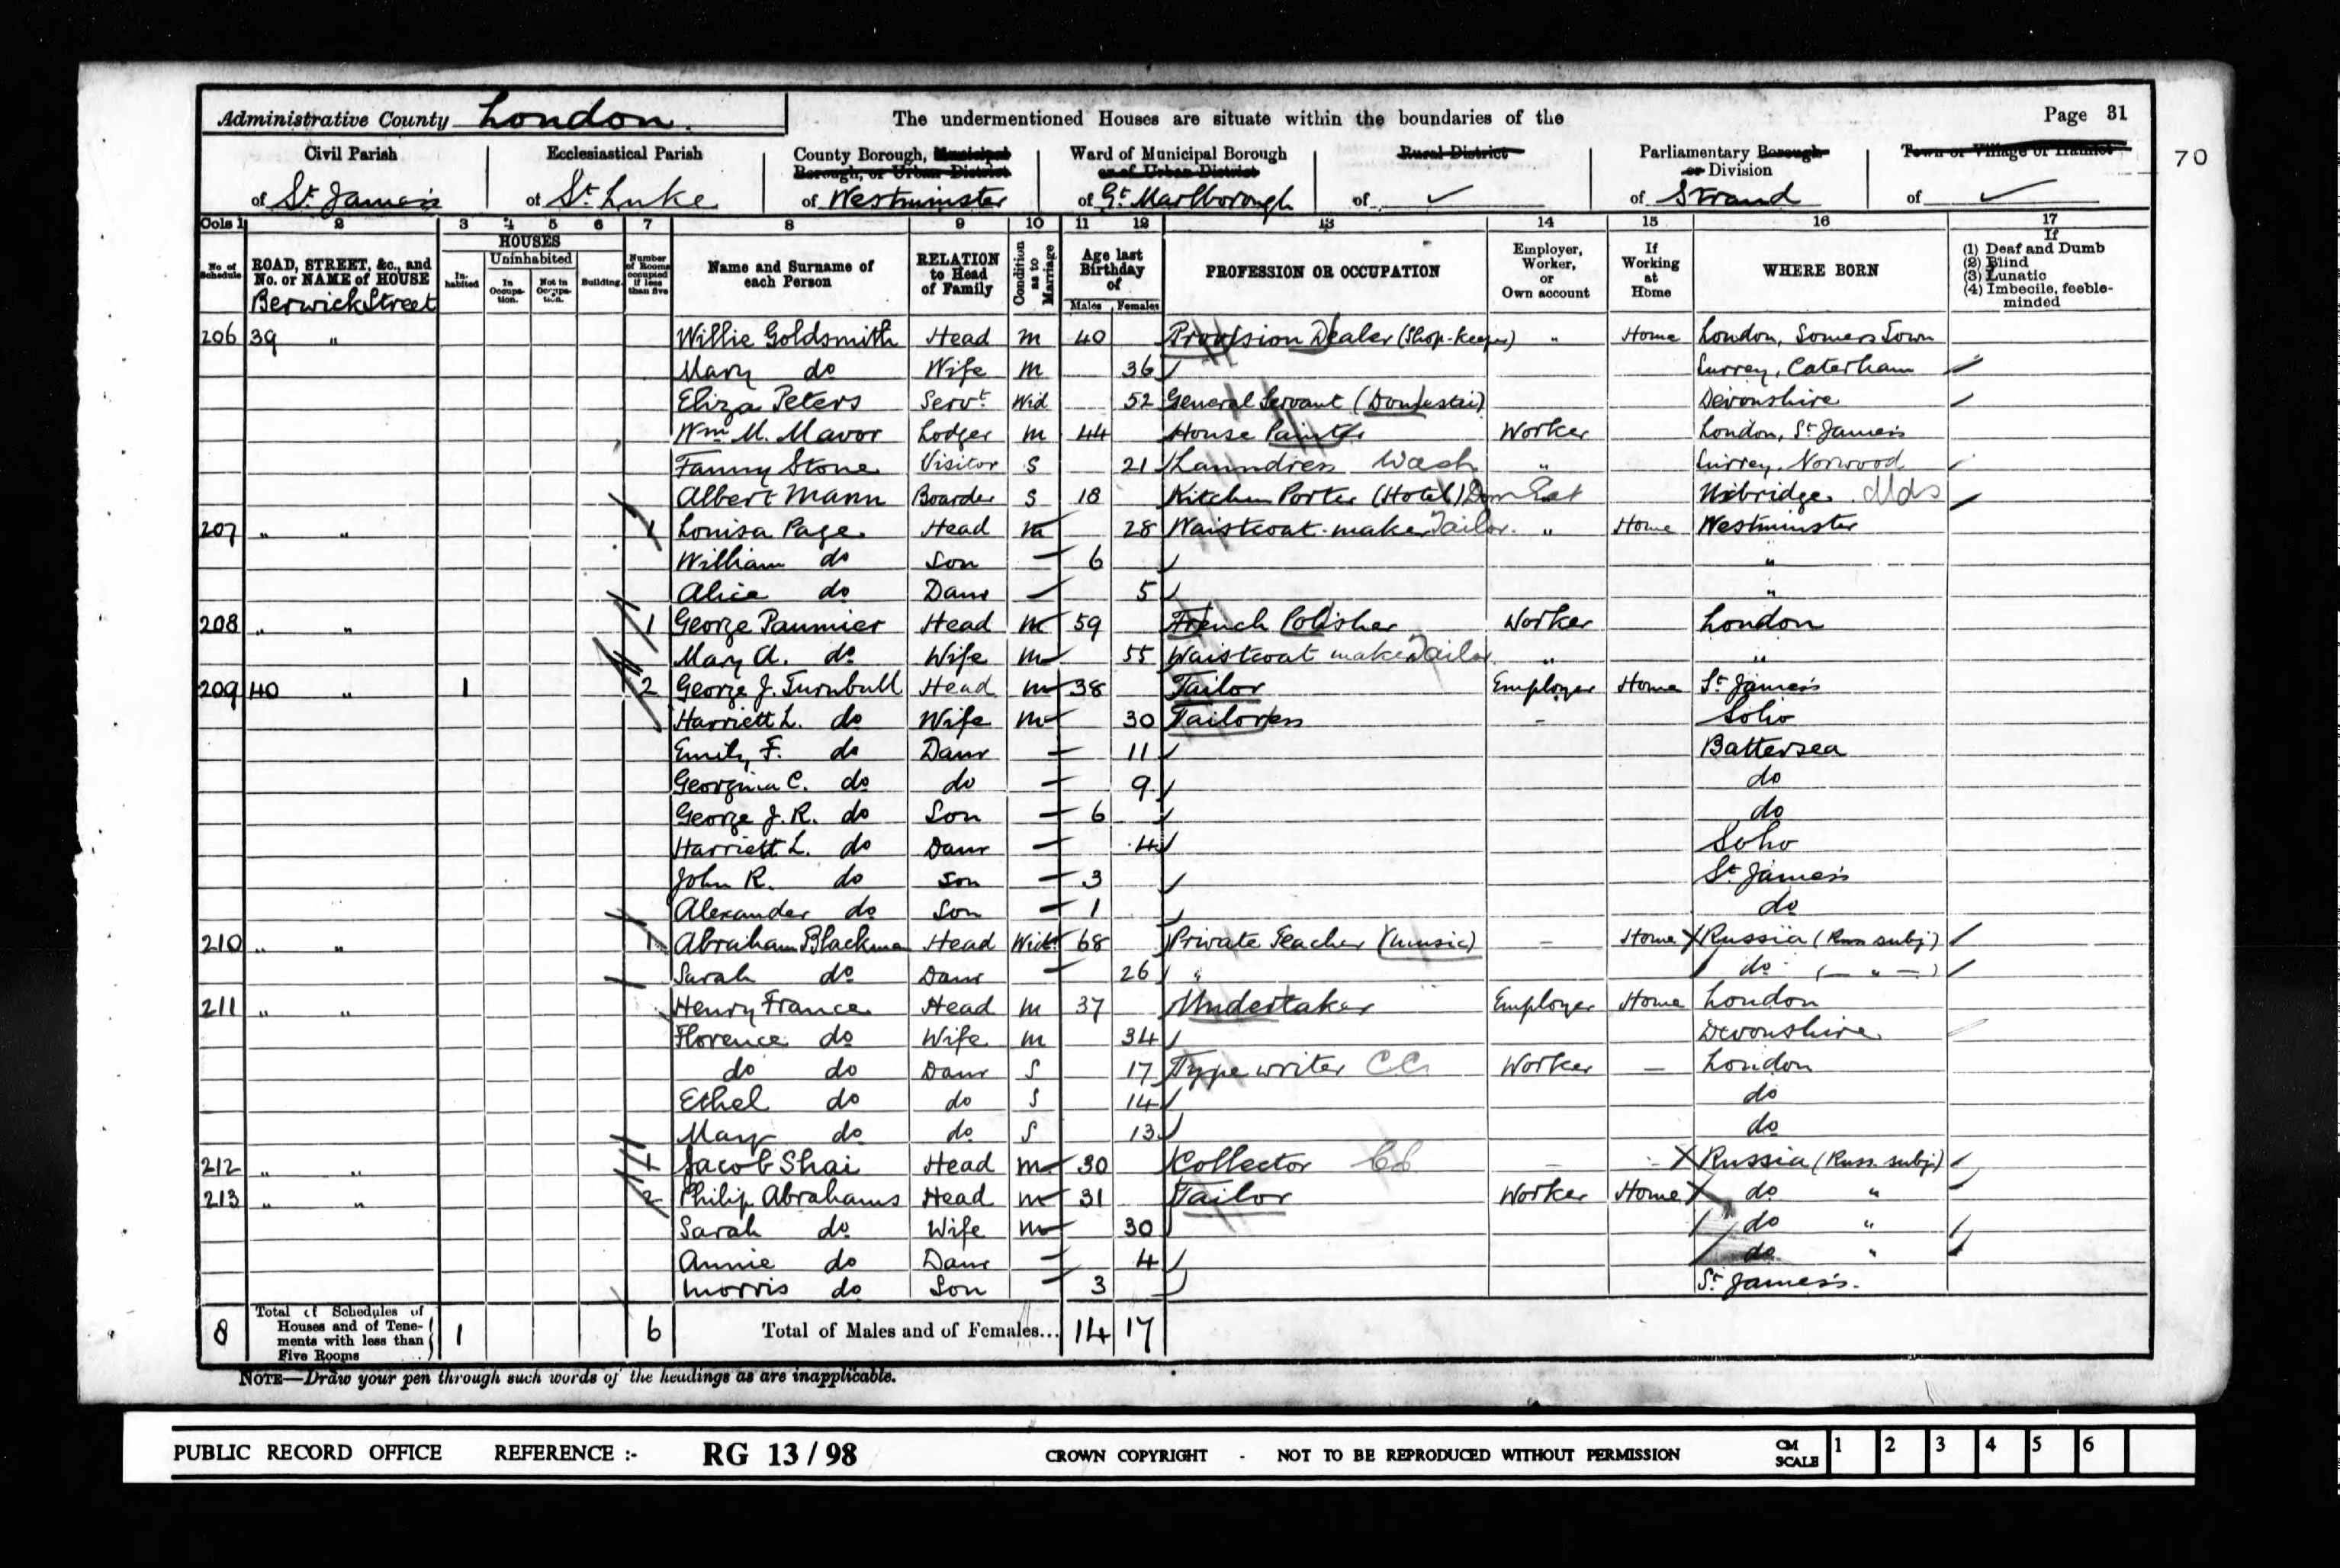 Administrative County London.
The undermentioned Houses are situate within the boundaries of the
Page 31
70
Civil Parish of St James's
Ecclesiastical Parish of St Luke
County Borough, Municipal Borough, or Urban District of Westminster
Ward of Municipal Borough or of Urban District of Gt Marlborough
Rural District of ✓
Parliamentary Borough or Division of Strand
Town or Village or Hamlet of ✓
Cols 1 2 3 4 5 6 7 8 9 10 11 12 13 14 15 16 17
No of Schedule
ROAD, STREET, &c., and No. or NAME of HOUSE
Berwick Street
HOUSES
Inhabited
Uninhabited
In Occupation.
Not in Occupation.
Building
Number of Rooms occupied if less than five
Name and Surname of each Person
RELATION to Head of Family
Condition as to Marriage
Age last Birthday of
Males Females
PROFESSION OR OCCUPATION
Employer, Worker, or Own account
If Working at Home
WHERE BORN
If
(1) Deaf and Dumb
(2) Blind
(3) Lunatic
(4) Imbecile, feeble-minded
206 39 " Willie Goldsmith Head M 40 Provision Dealer (Shop-keeper) " Home London, Somers Town
Mary do Wife M 36 Surrey, Caterham
Eliza Peters Servt Wid 52 General Servant (Domestic) Devonshire
Wm M. Mavor Lodger M 44 House Painter Worker London, St James's
Fanny Stone Visitor S 21 Laundress Wash " Surrey, Norwood
Albert Mann Boarder S 18 Kitchen Porter (Hotel) Dom Uxbridge. Mds
207 " " 1 Louisa Page. Head M 28 Waistcoat-maker Tailor. " Home Westminster
William do Son — 6 "
Alice do Daur — 5 "
208 " " 1 George Paumier Head M 59 French Polisher Worker London
Mary A. do Wife M 55 Waistcoat maker Tailor " "
209 40 " 1 2 George J. Turnbull Head M 38 Tailor Employer Home St James's
Harriett L. do Wife M 30 Tailoress - Soho
Emily F. do Daur — 11 Battersea
Georgina C. do do — 9 do
George J. R. do Son — 6 do
Harriett L. do Daur — 4 Soho
John R. do Son — 3 St James's
Alexander do Son — 1 do
210 " " 1 Abraham Blackman Head Widr 68 Private Teacher (Music) — Home Russia (Russ subj)
Sarah do Daur — 26 " do (— " —)
211 " " Henry France. Head M 37 Undertaker Employer Home London
Florence do Wife M 34 Devonshire
do do Daur S 17 Type writer CC Worker — London
Ethel do do S 14 do
Mary do do S 13 do
212 " " 1 Jacob Shai Head M 30 Collector — - Russia (Russ. subj)
213 " " 2 Philip Abrahams Head M 31 Tailor Worker Home do "
Sarah do Wife M 30 do "
Annie do Daur — 4 do "
Morris do Son — 3 St James's.
8 Total of Schedules of Houses and of Tenements with less than Five Rooms 1 6 Total of Males and of Females... 14 17
NOTE—Draw your pen through such words of the headings as are inapplicable.
PUBLIC RECORD OFFICE REFERENCE :- RG 13 / 98 CROWN COPYRIGHT - NOT TO BE REPRODUCED WITHOUT PERMISSION
CM SCALE 1 2 3 4 5 6